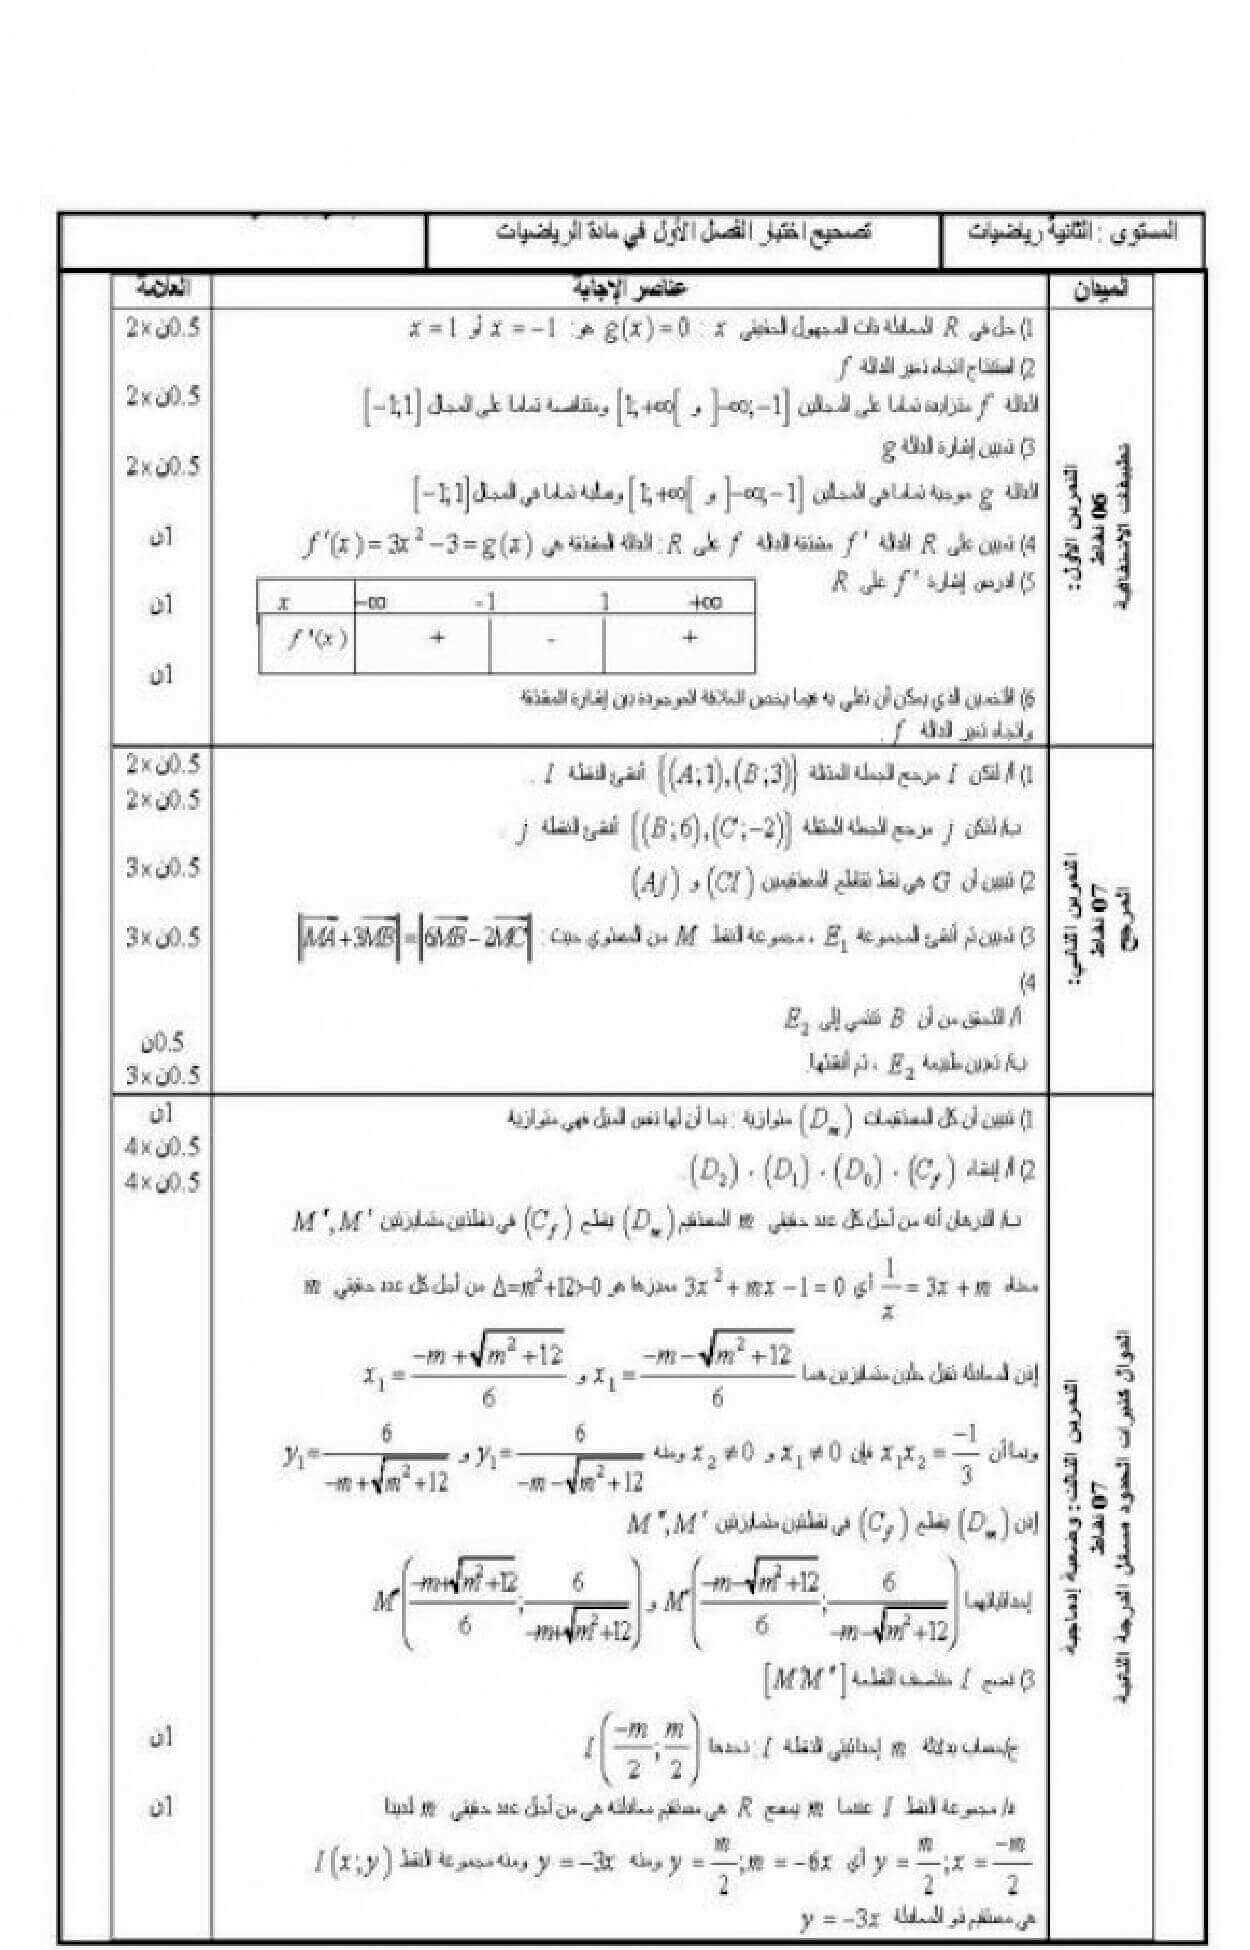 المستوى : الثانية رياضيات
تصحيح اختبار الفصل الأول في مادة الرياضيات
الميدان
عناصر الإجابة
العلامة
التمرين الأول:
06 نقاط
تطبيقات الاشتقاقية
1) حل في R المعادلة ذات المجهول الحقيقي x : g(x)=0 هو: x=-1 أو x=1
0.5ن×2
2) استنتاج اتجاه تغير الدالة f
الدالة f متزايدة تماما على المجالين ]-∞;-1] و [1;+∞[ ومتناقصة تماما على المجال [-1;1]
0.5ن×2
3) تعيين إشارة الدالة g
الدالة g موجبة تماما في المجالين ]-∞;-1] و [1;+∞[ وسالبة تماما في المجال [-1;1]
0.5ن×2
4) تعيين على R الدالة f' مشتقة الدالة f على R : الدالة المشتقة هي f'(x)=3x²-3=g(x)
1ن
5) ادرس إشارة f' على R
1ن
x -∞ -1 1 +∞
f'(x) + - +
6) التخمين الذي يمكن أن نعطي به فيما يخص العلاقة الموجودة بين إشارة المشتقة
واتجاه تغير الدالة f :
1ن
التمرين الثاني:
07 نقاط
المرجح
1) أ/ لتكن I مرجح الجملة المثقلة {(A;1),(B;3)} أنشئ النقطة I .
0.5ن×2
ب/ لتكن j مرجح الجملة المثقلة {(B;6),(C;-2)} أنشئ النقطة j .
0.5ن×2
2) تبيين أن G هي نقط تقاطع المستقيمين (CI) و (Aj)
0.5ن×3
3) تعيين ثم أنشئ المجموعة E₁ ، مجموعة النقط M من المستوي حيث : |MA+3MB|=|6MB-2MC|
0.5ن×3
4)
أ/ التحقق من أن B تنتمي إلى E₂
0.5ن
ب/ تعيين طبيعة E₂ ، ثم أنشئها.
0.5ن×3
التمرين الثالث: وضعية إدماجية
07 نقاط
الدوال كثيرات الحدود مسقل الدرجة الثانية
1) تبيين أن كل المستقيمات (Dm) متوازية : بما أن لها نفس الميل فهي متوازية
1ن
0.5ن×4
2) أ/ إنشاء (Cf) ، (D₀) ، (D₁) ، (D₂)
0.5ن×4
ب/ البرهان أنه من أجل كل عدد حقيقي m المستقيم (Dm) يقطع (Cf) في نقطتين متمايزتين M",M'
معناه 1/x=3x+m أي 3x²+mx-1=0 مميزها هو Δ=m²+12>0 من أجل كل عدد حقيقي m
إذن المعادلة تقبل حلين متمايزين هما x₁=(-m-√(m²+12))/6 و x₁=(-m+√(m²+12))/6
وبما أن x₁x₂=-1/3 فإن x₁≠0 و x₂≠0 ومنه y₁=6/(-m-√(m²+12)) و y₁=6/(-m+√(m²+12))
إذن (Dm) يقطع (Cf) في نقطتين متمايزتين M",M'
إحداثياتهما M'((-m-√(m²+12))/6;6/(-m-√(m²+12))) و M"((-m+√(m²+12))/6;6/(-m+√(m²+12)))
3) نضع I منتصف القطعة [M'M"]
ج/حساب بدلالة m إحداثيتي النقطة I : نجدها I(-m/2;m/2)
1ن
د/ مجموعة النقط I عندما m يمسح R هي مستقيم معادلته هي من أجل عدد حقيقي m لدينا
1ن
x=-m/2;y=m/2 أي y=m/2;m=-6x ومنه y=-3x ومنه مجموعة النقط I(x;y)
هي مستقيم ذو المعادلة y=-3x